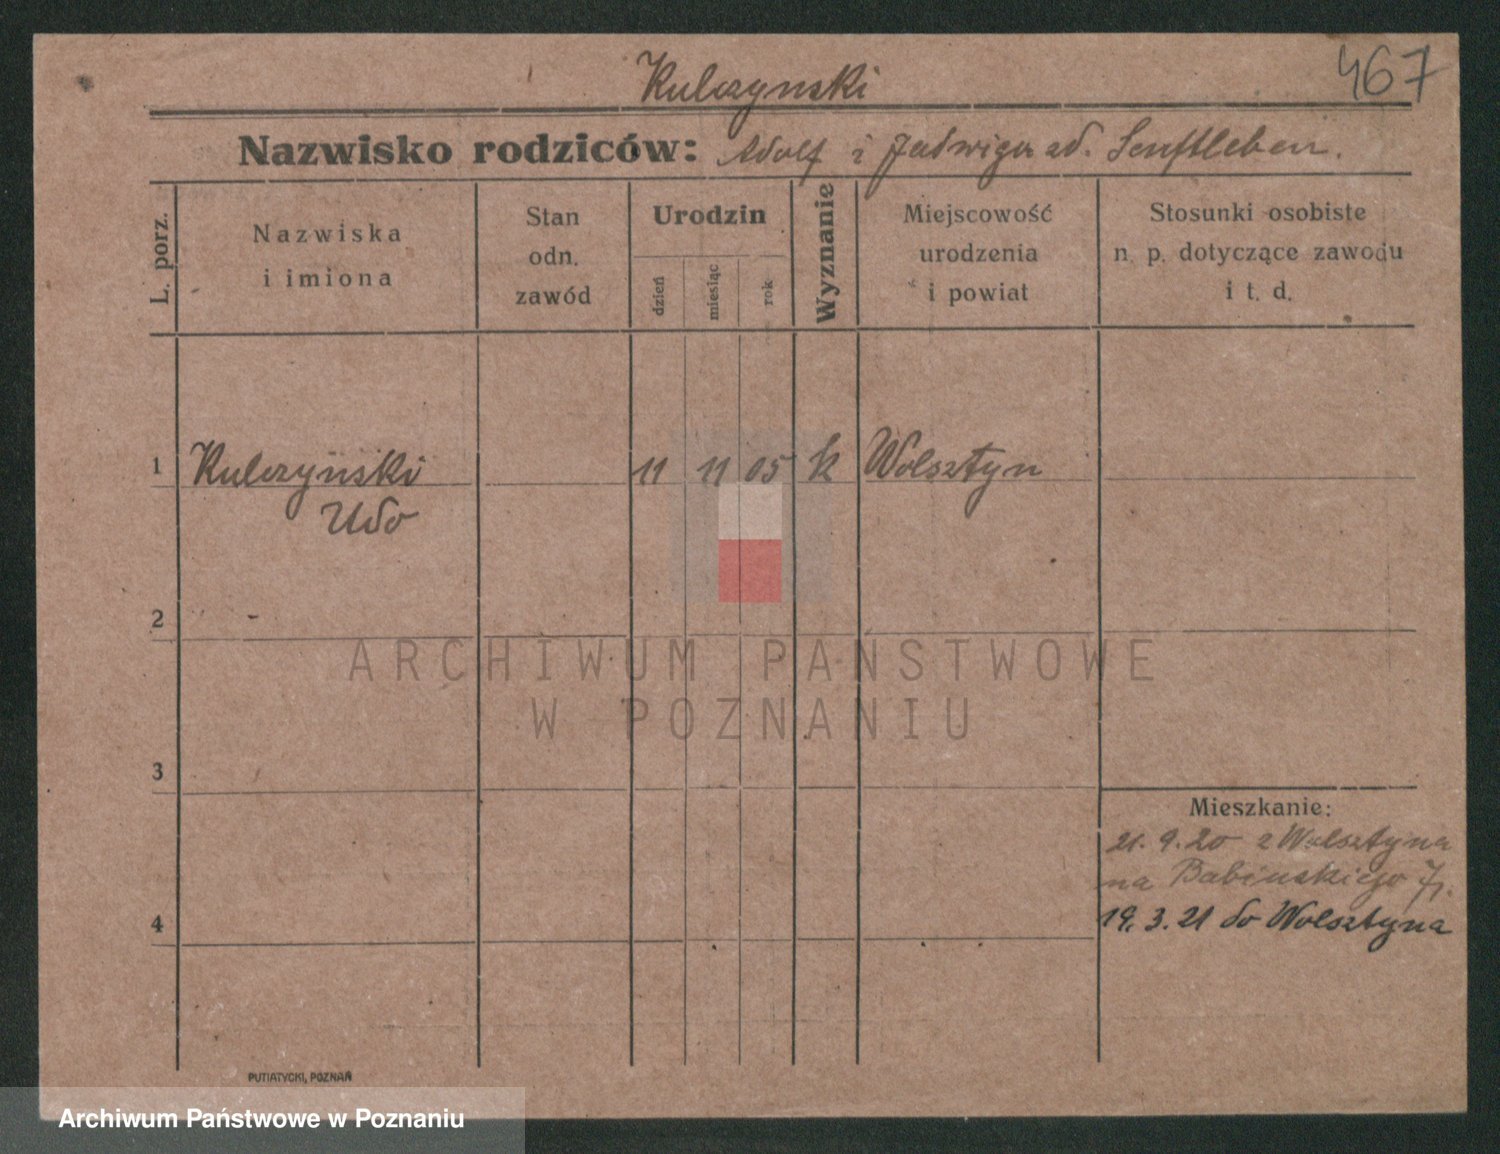 Kulczynski
467
Nazwisko rodziców: Adolf i Jadwiga zd. Senftleben.
L. porz.
Nazwiska
i imiona
Stan
odn.
zawód
Urodzin
dzień
miesiąc
rok
Wyznanie
Miejscowość
urodzenia
i powiat
Stosunki osobiste
n. p. dotyczące zawodu
i t. d.
1 Kulczyński 11 11 05 k Wolsztyn
Udo
2
ARCHIWUM PAŃSTWOWE
W POZNANIU
3
Mieszkanie:
21. 9. 20 z Wolsztyna
na Babinskiego
19. 3. 21 do Wolsztyna
4
PUTIATYCKI, POZNAŃ
Archiwum Państwowe w Poznaniu